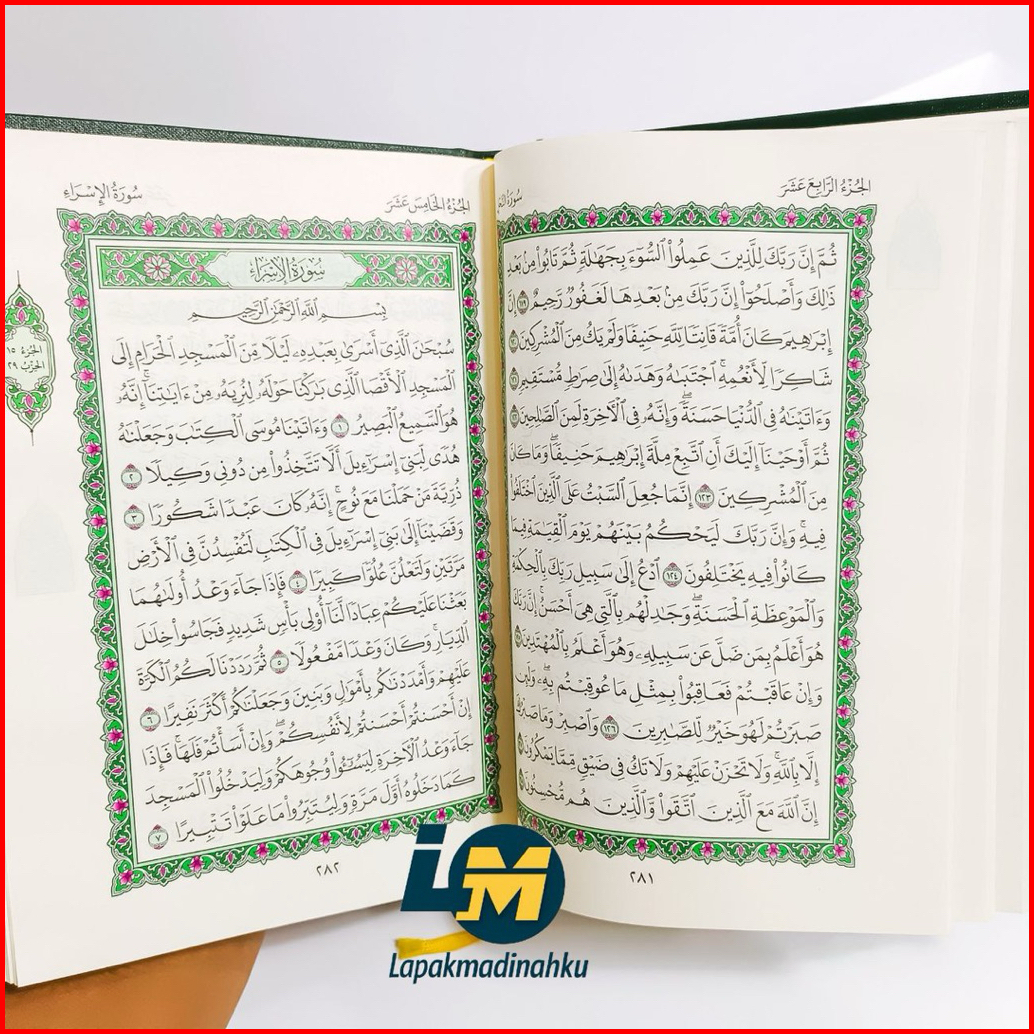 الجُزْءُ الرَّابِعَ عَشَرَ
سُورَةُ
ثُمَّ إِنَّ رَبَّكَ لِلَّذِينَ عَمِلُوا۟ ٱلسُّوٓءَ بِجَهَٰلَةٍ ثُمَّ تَابُوا۟ مِنۢ بَعْدِ
ذَٰلِكَ وَأَصْلَحُوٓا۟ إِنَّ رَبَّكَ مِنۢ بَعْدِهَا لَغَفُورٌ رَّحِيمٌ ١١٩ إِنَّ
إِبْرَٰهِيمَ كَانَ أُمَّةً قَانِتًا لِّلَّهِ حَنِيفًا وَلَمْ يَكُ مِنَ ٱلْمُشْرِكِينَ
شَاكِرًا لِّأَنْعُمِهِ ۚ ٱجْتَبَىٰهُ وَهَدَىٰهُ إِلَىٰ صِرَٰطٍ مُّسْتَقِيمٍ
وَءَاتَيْنَٰهُ فِى ٱلدُّنْيَا حَسَنَةً ۖ وَإِنَّهُۥ فِى ٱلْءَاخِرَةِ لَمِنَ ٱلصَّٰلِحِينَ
ثُمَّ أَوْحَيْنَآ إِلَيْكَ أَنِ ٱتَّبِعْ مِلَّةَ إِبْرَٰهِيمَ حَنِيفًا ۖ وَمَا كَانَ
مِنَ ٱلْمُشْرِكِينَ ١٢٣ إِنَّمَا جُعِلَ ٱلسَّبْتُ عَلَى ٱلَّذِينَ ٱخْتَلَفُوا۟
فِيهِ ۚ وَإِنَّ رَبَّكَ لَيَحْكُمُ بَيْنَهُمْ يَوْمَ ٱلْقِيَٰمَةِ فِيمَا
كَانُوا۟ فِيهِ يَخْتَلِفُونَ ١٢٤ ٱدْعُ إِلَىٰ سَبِيلِ رَبِّكَ بِٱلْحِكْمَةِ
وَٱلْمَوْعِظَةِ ٱلْحَسَنَةِ ۖ وَجَٰدِلْهُم بِٱلَّتِى هِىَ أَحْسَنُ ۚ إِنَّ رَبَّكَ
هُوَ أَعْلَمُ بِمَن ضَلَّ عَن سَبِيلِهِۦ ۖ وَهُوَ أَعْلَمُ بِٱلْمُهْتَدِينَ
وَإِنْ عَاقَبْتُمْ فَعَاقِبُوا۟ بِمِثْلِ مَا عُوقِبْتُم بِهِۦ ۖ وَلَئِن
صَبَرْتُمْ لَهُوَ خَيْرٌ لِّلصَّٰبِرِينَ ١٢٦ وَٱصْبِرْ وَمَا صَبْرُكَ
إِلَّا بِٱللَّهِ ۚ وَلَا تَحْزَنْ عَلَيْهِمْ وَلَا تَكُ فِى ضَيْقٍ مِّمَّا يَمْكُرُونَ
إِنَّ ٱللَّهَ مَعَ ٱلَّذِينَ ٱتَّقَوا۟ وَّٱلَّذِينَ هُم مُّحْسِنُونَ
٢٨١
الجُزْءُ الخَامِسَ عَشَرَ
سُورَةُ الإِسْرَاءِ
سُورَةُ الإِسْرَاءِ
بِسْمِ ٱللَّهِ ٱلرَّحْمَٰنِ ٱلرَّحِيمِ
سُبْحَٰنَ ٱلَّذِىٓ أَسْرَىٰ بِعَبْدِهِۦ لَيْلًا مِّنَ ٱلْمَسْجِدِ ٱلْحَرَامِ إِلَى
ٱلْمَسْجِدِ ٱلْأَقْصَا ٱلَّذِى بَٰرَكْنَا حَوْلَهُۥ لِنُرِيَهُۥ مِنْ ءَايَٰتِنَآ ۚ إِنَّهُۥ
هُوَ ٱلسَّمِيعُ ٱلْبَصِيرُ ١ وَءَاتَيْنَا مُوسَى ٱلْكِتَٰبَ وَجَعَلْنَٰهُ
هُدًى لِّبَنِىٓ إِسْرَٰٓءِيلَ أَلَّا تَتَّخِذُوا۟ مِن دُونِى وَكِيلًا ٢
ذُرِّيَّةَ مَنْ حَمَلْنَا مَعَ نُوحٍ ۚ إِنَّهُۥ كَانَ عَبْدًا شَكُورًا ٣
وَقَضَيْنَآ إِلَىٰ بَنِىٓ إِسْرَٰٓءِيلَ فِى ٱلْكِتَٰبِ لَتُفْسِدُنَّ فِى ٱلْأَرْضِ
مَرَّتَيْنِ وَلَتَعْلُنَّ عُلُوًّا كَبِيرًا ٤ فَإِذَا جَآءَ وَعْدُ أُولَىٰهُمَا
بَعَثْنَا عَلَيْكُمْ عِبَادًا لَّنَآ أُو۟لِى بَأْسٍ شَدِيدٍ فَجَاسُوا۟ خِلَٰلَ
ٱلدِّيَارِ ۚ وَكَانَ وَعْدًا مَّفْعُولًا ٥ ثُمَّ رَدَدْنَا لَكُمُ ٱلْكَرَّةَ
عَلَيْهِمْ وَأَمْدَدْنَٰكُم بِأَمْوَٰلٍ وَبَنِينَ وَجَعَلْنَٰكُمْ أَكْثَرَ نَفِيرًا ٦
إِنْ أَحْسَنتُمْ أَحْسَنتُمْ لِأَنفُسِكُمْ ۖ وَإِنْ أَسَأْتُمْ فَلَهَا ۚ فَإِذَا
جَآءَ وَعْدُ ٱلْءَاخِرَةِ لِيَسُۥٓـُٔوا۟ وُجُوهَكُمْ وَلِيَدْخُلُوا۟ ٱلْمَسْجِدَ
كَمَا دَخَلُوهُ أَوَّلَ مَرَّةٍ وَلِيُتَبِّرُوا۟ مَا عَلَوْا۟ تَتْبِيرًا ٧
الجُزْءُ ١٥
الحِزْبُ ٢٩
٢٨٢
LM
Lapakmadinahku